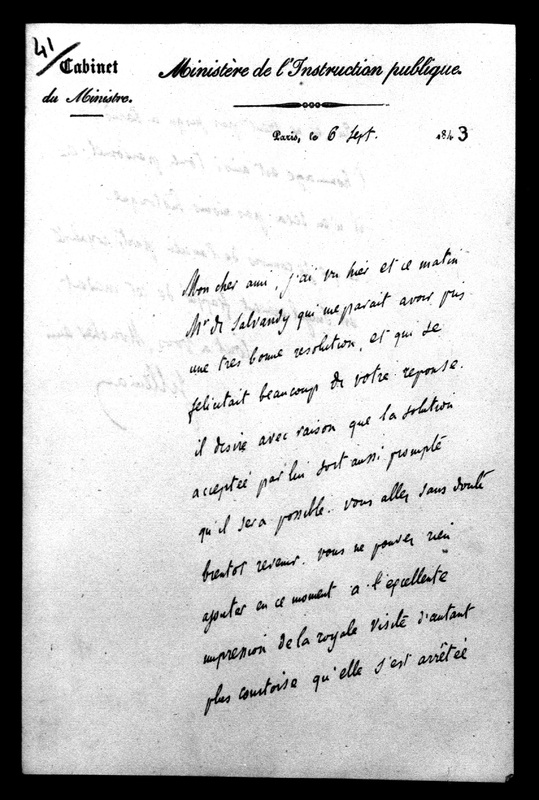 41
Cabinet
du Ministre.
Ministère de l'Instruction publique.
Paris, le 6 Sept. 1843
Mon cher ami, j'ai vu hier et ce matin
Mr de Salvandy qui me parait avoir pris
une tres bonne resolution, et qui se
felicitait beaucoup de votre reponse.
il desire avec raison que la solution
acceptée par lui soit aussi prompte
qu'il sera possible. vous allez sans doute
bientot revenir. vous ne pouvez rien
ajouter en ce moment a l'excellente
impression de la royale visite d'autant
plus courtoise qu'elle s'est arrêtée